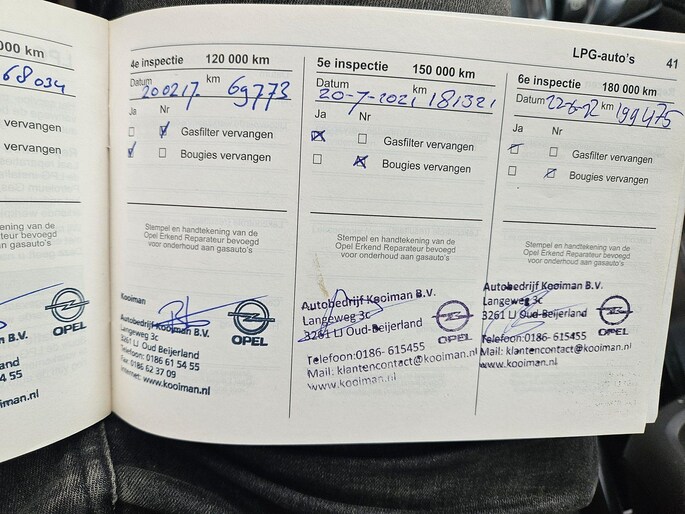 LPG-auto's 41
000 km
68034
vervangen
vervangen
tekening van de
teur bevoegd
an gasauto's
OPEL
n B.V.
54 55
iman.nl
4e inspectie 120 000 km
Datum 200217. km 69773
Ja Nr
Gasfilter vervangen
Bougies vervangen
Stempel en handtekening van de
Opel Erkend Reparateur bevoegd
voor onderhoud aan gasauto's
Kooiman
Autobedrijf Kooiman B.V.
Langeweg 3c
3261 LJ Oud Beijerland
Telefoon: 0186 61 54 55
Fax: 0186 62 37 09
Internet: www.kooiman.nl
OPEL
5e inspectie 150 000 km
Datum 20-7-2021 km 181321
Ja Nr
Gasfilter vervangen
Bougies vervangen
Stempel en handtekening van de
Opel Erkend Reparateur bevoegd
voor onderhoud aan gasauto's
Autobedrijf Kooiman B.V.
Langeweg 3c
3261 LJ Oud-Beijerland
Telefoon:0186- 615455
Mail: klantencontact@kooiman.nl
www.kooiman.nl
OPEL
6e inspectie 180 000 km
Datum 22-6-22 km 199475
Ja Nr
Gasfilter vervangen
Bougies vervangen
Stempel en handtekening van de
Opel Erkend Reparateur bevoegd
voor onderhoud aan gasauto's
Autobedrijf Kooiman B.V.
Langeweg 3c
3261 LJ Oud-Beijerland
Telefoon:0186- 615455
Mail: klantencontact@kooiman.nl
www.kooiman.nl
OPEL